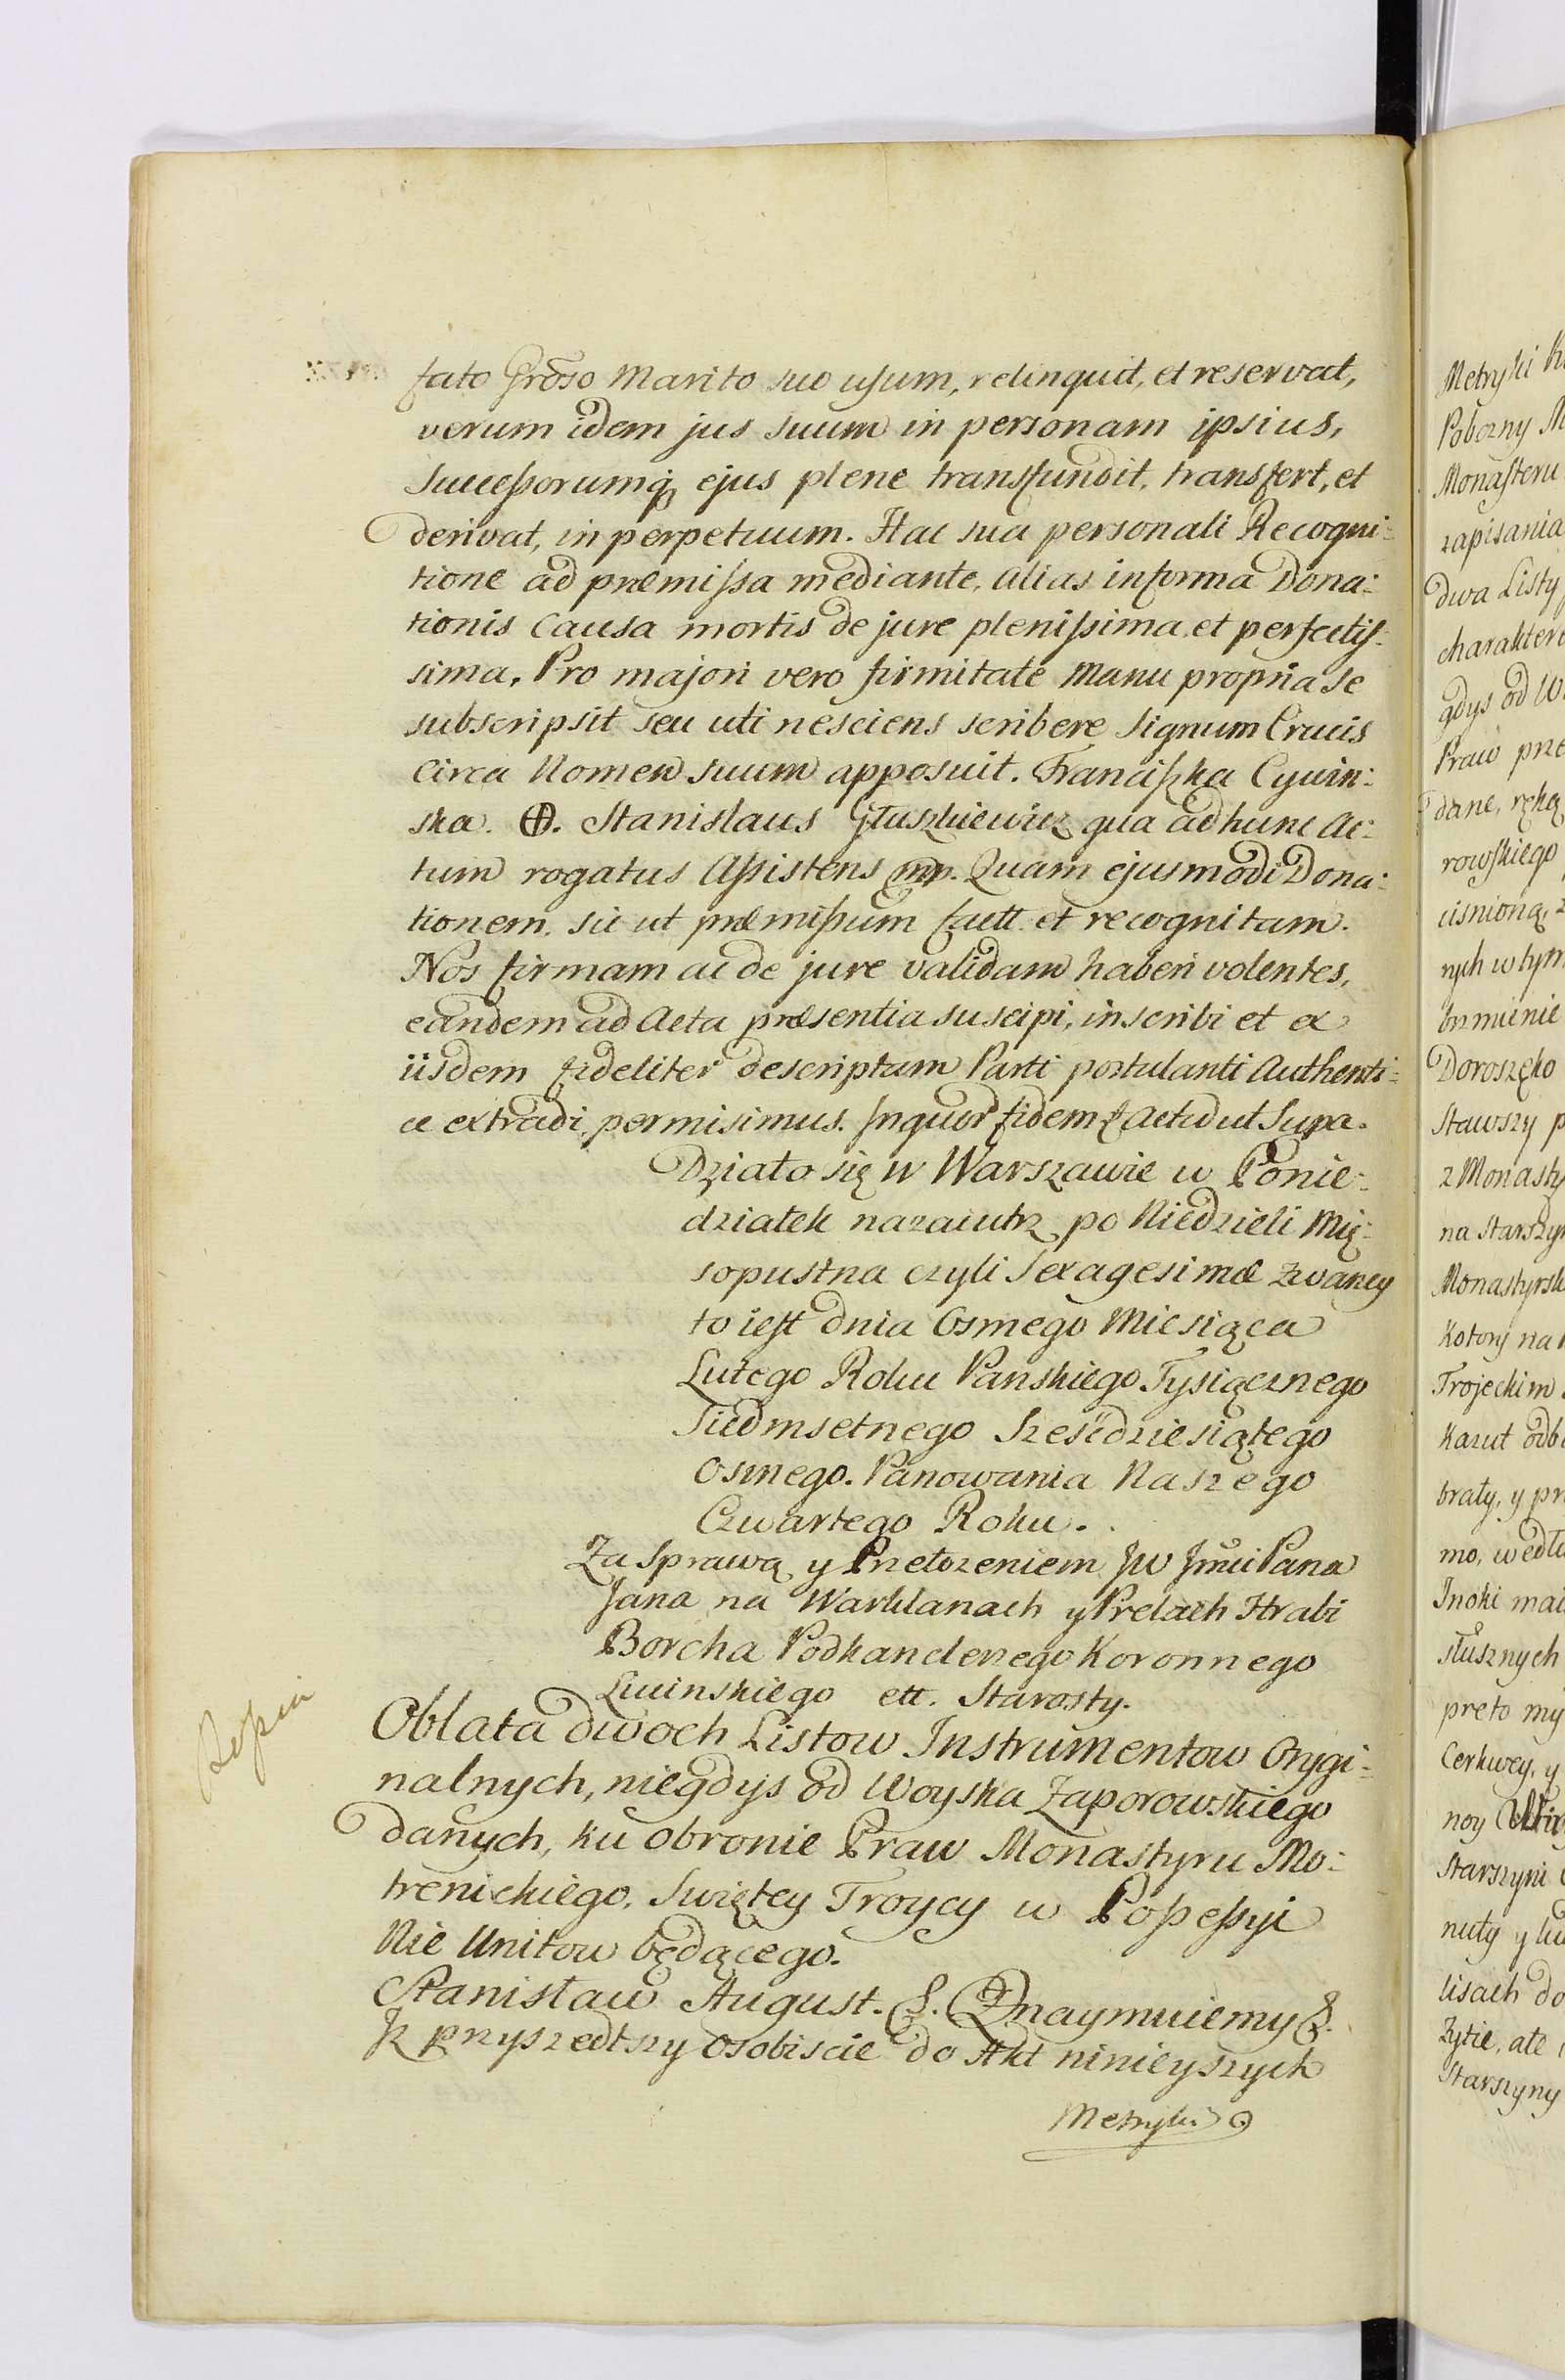 fato Grõso Marito suo usum, relinquit, et reservat,
verum idem jus suum in personam ipsius,
Successorumq, ejus plene transfundit, transfert, et
derivat, in perpetuum. Hac sua personali Recogni:
tione ad præmissa mediante, alias in forma Dona:
tionis Causa mortis de jure plenissima, et perfectis:
sima, Pro majori vero firmitate Manu propria se
subscripsit seu uti nesciens scribere Signum Crucis
circa Nomen suum apposuit. Franciszka Cywin:
ska. Stanislaus Głuszkiewicz qua ad hunc Ac:
tum rogatus Assistens mp. Quam ejusmodi Dona:
tionem, sic ut præmissum factt. et recognitam.
Nos firmam ac de jure validam haberi volentes,
eandem ad Acta præsentia suscipi, inscribi et ex
iisdem fideliter descriptam Parti postulanti Authenti:
ce extradi, permisimus. In quor fidem & Actũ ut Supa.
Działo się w Warszawie w Ponie:
działek nazaiutrz po Niedzieli Mię:
sopustna czyli Sexagesimæ zwaney
to iest dnia Osmego Miesiąca
Lutego Roku Panskiego Tysiącznego
Siedmsetnego Szesćdziesiątego
Osmego. Panowania Naszego
Czwartego Roku.
Za Sprawą y Przełozeniem JW Jmci Pana
Jana na Warklanach y Prelach Hrabi
Borcha Podkanclerzego Koronnego
Luinskiego ett. Starosty.
Oblata dwoch Listow Instrumentow Orygi:
nalnych, niegdys od Woyska Zaporowskiego
danych, ku obronie Praw Monastyru Mo:
trenickiego, Swiętey Troycy w Possessyi
Nie Unitow będącego.
Stanisław August. &. Oznaymuiemy &.
Jz przyszedłszy osobiscie do Akt ninieyszych
Metryki
Metryki
Pobozny
Monasteru
zapisania
dwa Listy
charaktere
gdys od W
Praw prze
dane, ręką
rowskiego
cisnioną,
nych w tym
brzmienie
Doroszęko
Stawszy p
z Monasty
na Starszyn
Monastyrsk
Kotory na
Trojeckim
Kazut odb
braty, y pr
mo, wedłu
Inoki mai
słusznych
preto my
Cerkwey, y
noy
Starszyni
nuły y lu
lisach do
Zytie, ale
Starszyny